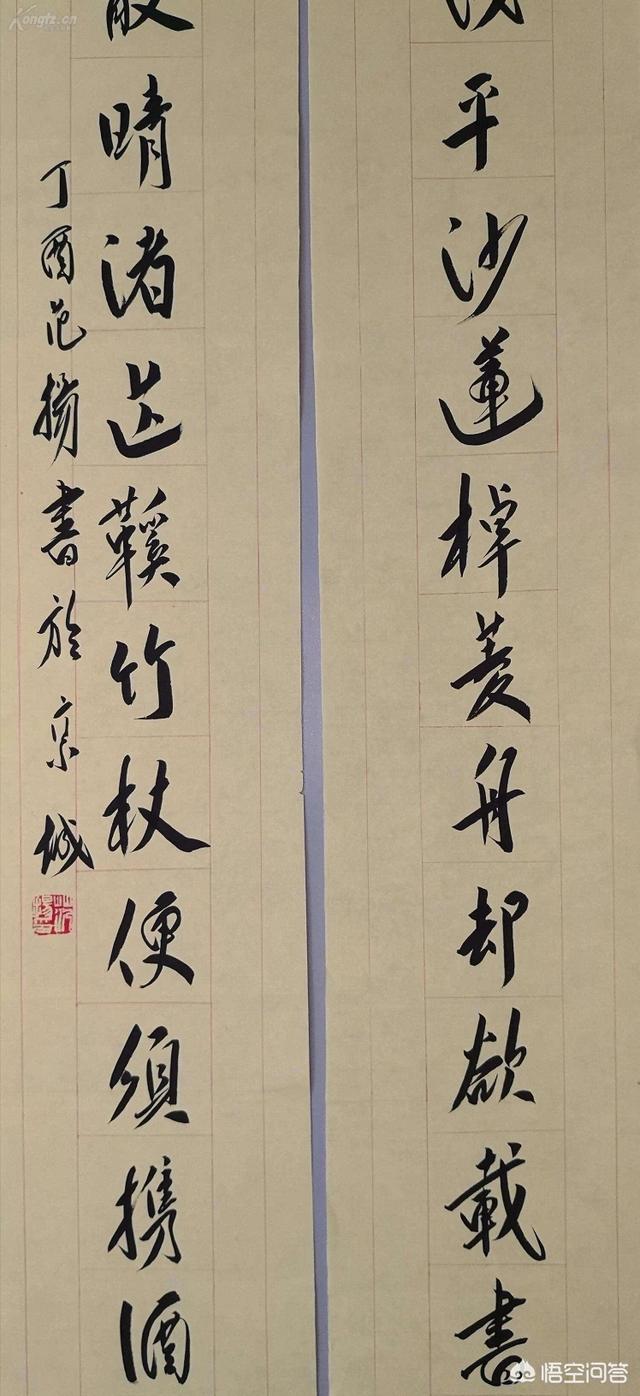 Kongfz.cn
平沙蓮棹菱舟却欲載書
散晴渚芒鞵竹杖便須携酒
丁酉范揚書於京城
悟空问答